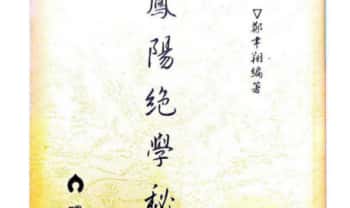 ▽鄭聿翔編著
鳳陽絕學秘